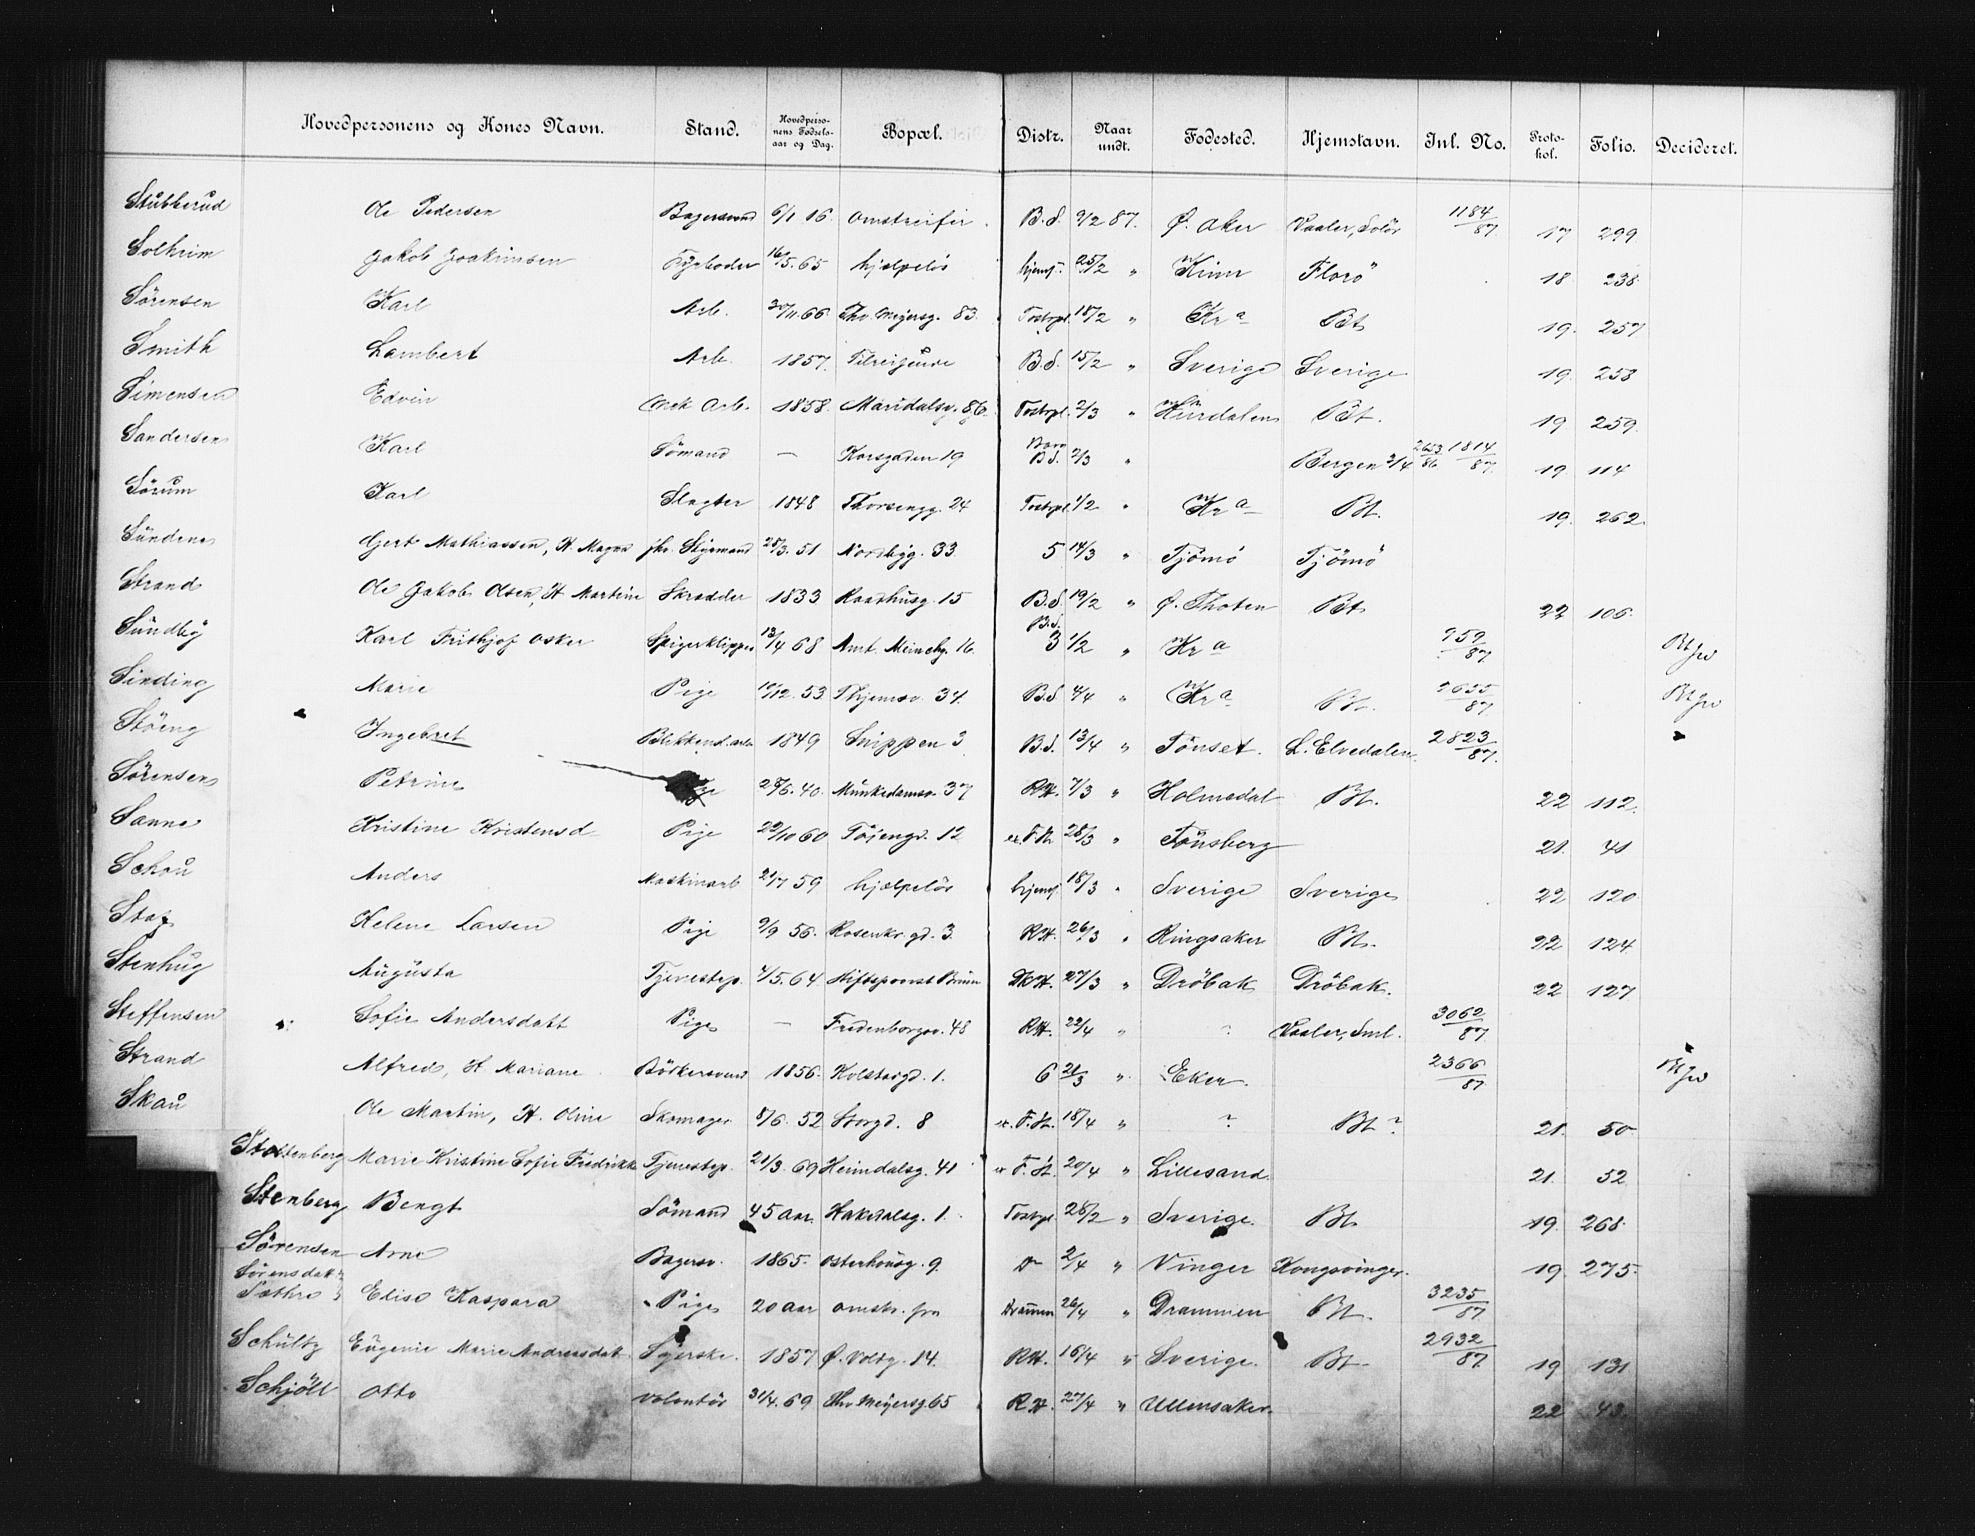 Hovedpersonens og Kones Navn. Stand. Hovedperso-nens Fødsels-aar og Dag. Bopæl. Distr. Naar undt. Fødested. Hjemstavn. Inl. No. Proto-kol. Folio. Decideret.
Stubberud Ole Pedersen Bagersvend 6/1 16 omstreifer B.S. 9/2 87. Ø. Aker Vaaler, Solör 1184/87 17 299
Solheim Jakob Joakimsen Fyrböder 16/5. 65 hjælpelös hjemf. 25/2 " Kinn Florö 18 238
Sörensen Karl Arb. 30/11 66 Thv. Meyersg. 83. Tostrpl. 18/2 " Kra Bt 19. 257
Smith Lambert Arb. 1857. Tilreisende B.S. 15/2 " Sverige Sverige 19. 258
Simensen Edvin mek Arb. 1858. Maridalsv. 86. Tostrpl. 2/3 " Hurdalen Bt. 19 259.
Sandersen Karl Sömand — Korsgaden 19 B.S. 2/3 " Bergen 3/4 2653/86 1814/87 19 114
Sörum Karl Slagter 1848 Thorsengg. 24 Tostrpl. 1/2 " Kra Bt. 19. 262
Sundene Gert Mathiassen, H. Magna fhv. Styrmand 28/3. 51 Nordbyg. 33 5 14/3 " Tjömö Tjömö
Strand Ole Jakob Olsen, H Martine Skrædder 1833 Raadhusg. 15 B.S. 19/2 " Ø. Thoten Bt 22 106.
Sundby Karl Frithjof Oskar Spigerklipper 13/4 68 Amt. Meinichg. 16. B.S. 3 1/2 " Kra 959/87 Bt
Sinding Marie Pige 10/12. 53 Thjemsv. 34. B.S. 4/4 " Kra Bt. 2655/87 Bt
Stöeng Ingebret Blikkensl. arb. 1849 Snippen 3 B.S. 13/4 " Tönset. L. Elvedalen. 2823/87.
Sörensen Petrine 28/6. 40. Munkedamsv. 37 RH. 7/3 " Holmedal Bt. 22 112.
Sanne Kristine Kristensd Pige 22/10 60 Töjengd. 12 28/3 " Tönsberg 21. 41
Schou Anders Maskinarb 21/7 59 hjælpelös hjemf 18/3 " Sverige Sverige 22 120
Helene Larsen Pige 9/9 56. Rosenkr. gd. 3. RH. 26/3 " Ringsaker Bt. 22 124.
Stenhug Augusta Tjenestep. 4/5. 64 RH. 27/3 " Dröbak Dröbak. 22 127
Steffensen Sofie Andersdatt Pige — Fredenborgv. 48 RH. 22/4 " ? Vaaler, Sml. 3062/87.
Strand Alfred, H. Mariane Bödkersvend 1856. Holsteigd. 1. 6 21/3 " Eker. 2366/87 Bt
Skau Ole Martin, H. Oline Skomager 8/6. 52 Storgd. 8 F.H. 18/4 " ? Bt ? 21. 50
Stoltenberg Marie Kristine Sofie Fredrikke Tjenestep. 21/3. 69 Heimdalsg. 41 F.H. 20/4 " Lillesand. 21. 52
Stenberg Bengt Sömand 45 aar. Hakedalsg. 1. Tostrpl 28/2 " Sverige. Bt 19. 268.
Sörensen Arne Bagersv. 1865. Osterhausg. 9. 2/4 " Vinger Kongsvinger. 19. 275.
Sörensdatt
Sæthre Elise Kaspara Pige 20 aar omstr. fra Drammen 26/4 " Drammen Bt. 3235/87
Schultz Eugenie Marie Andreasdatt Syerske. 1857 Ø. Voldg. 14. RH. 16/4 " Sverige. Bt 2932/87. 19 131.
Schjöll Otto Volontör 31/4. 69 Thv. Meyersg. 65 RH. 27/4 " Ullensaker. 22 43.